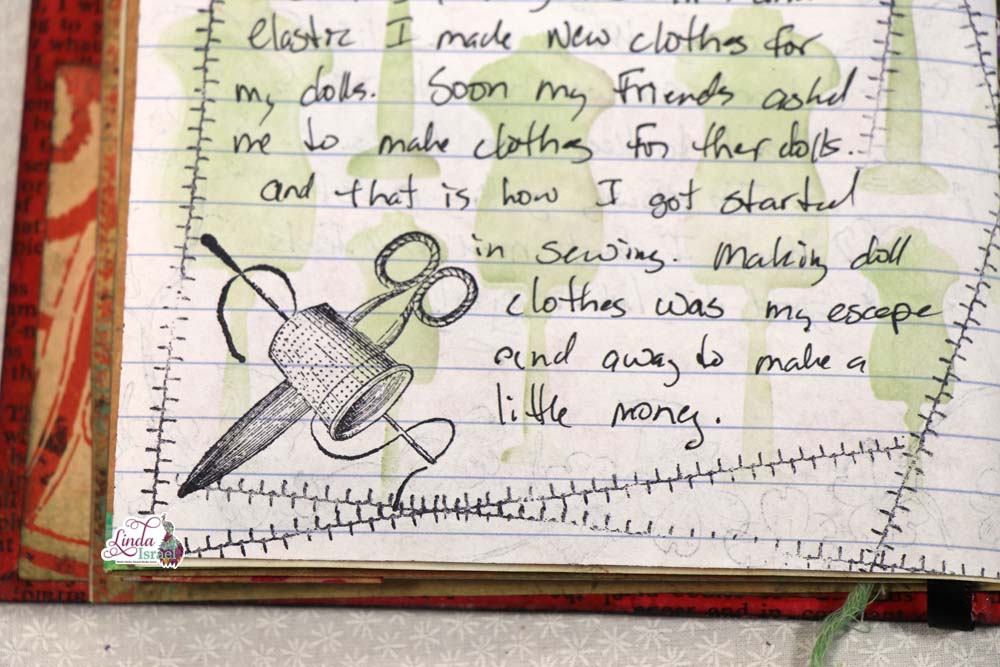 elastic I made New clothes for
my dolls. Soon my Friends askd
me to make clothes for ther dolls.
and that is how I got started
in sewing. Making doll
clothes was my escape
and away to make a
little money.
Linda
Israel